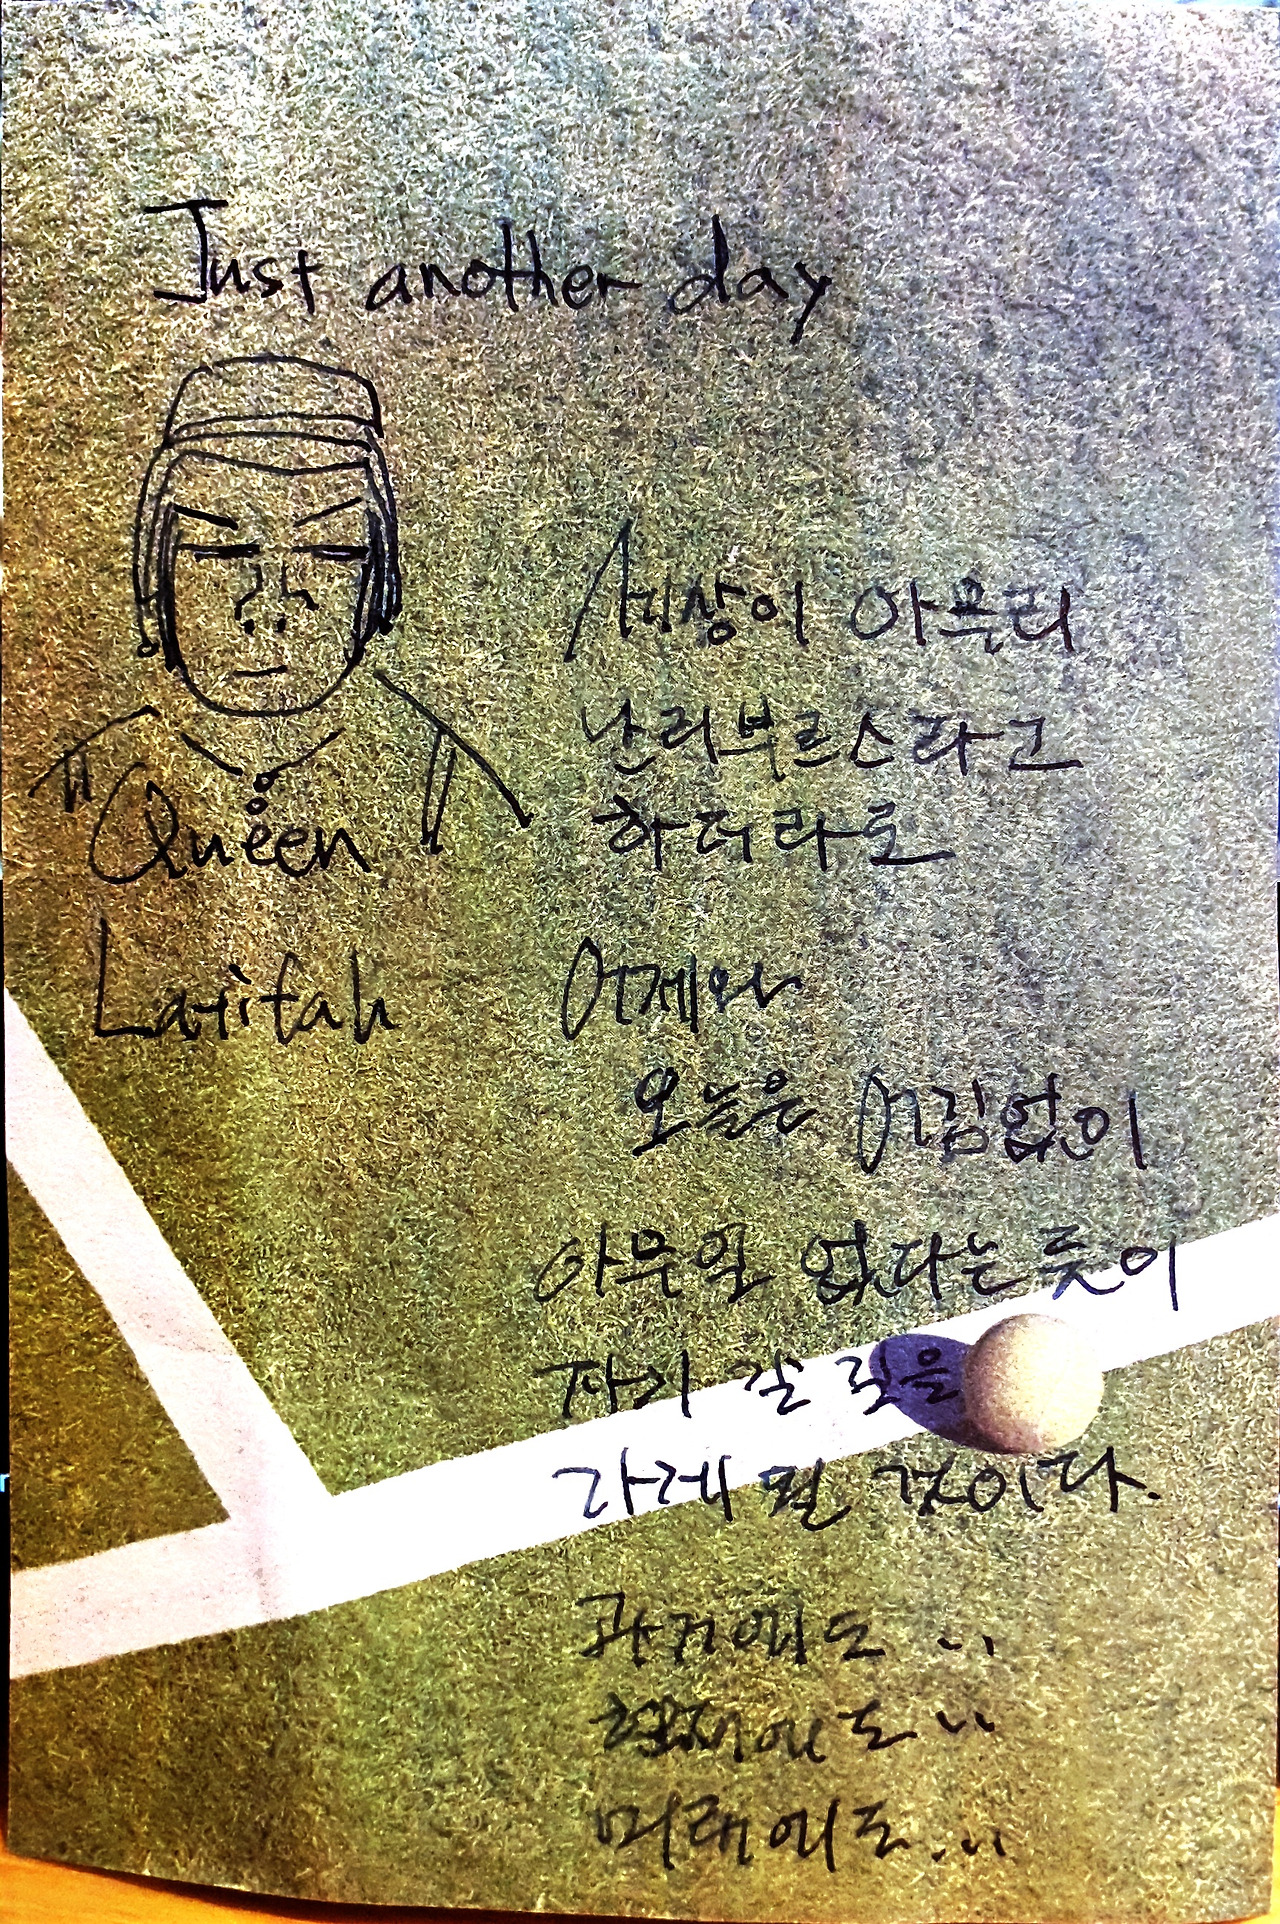 Just another day
Queen
Latifah
세상이 아무리
난리부르스라고
하더라도
어제와
오늘은 어김없이
아무일 없다는듯이
자기 갈 길을
가게 될 것이다.
과거에도 ..
현재에도 ..
미래에도 ...